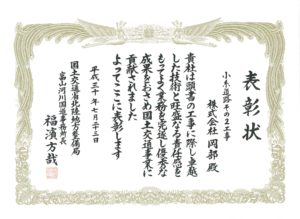 表彰状
小矢道路その2工事
株式会社 岡部 殿
貴社は頭書の工事に際し卓越
した技術と旺盛なる責任感を
もってよく業務を完遂し優秀な
成果をおさめ国土交通事業に
貢献されました
よってここに表彰します
平成三十年七月二十三日
国土交通省北陸地方整備局
富山河川国道事務所長
福濱方哉